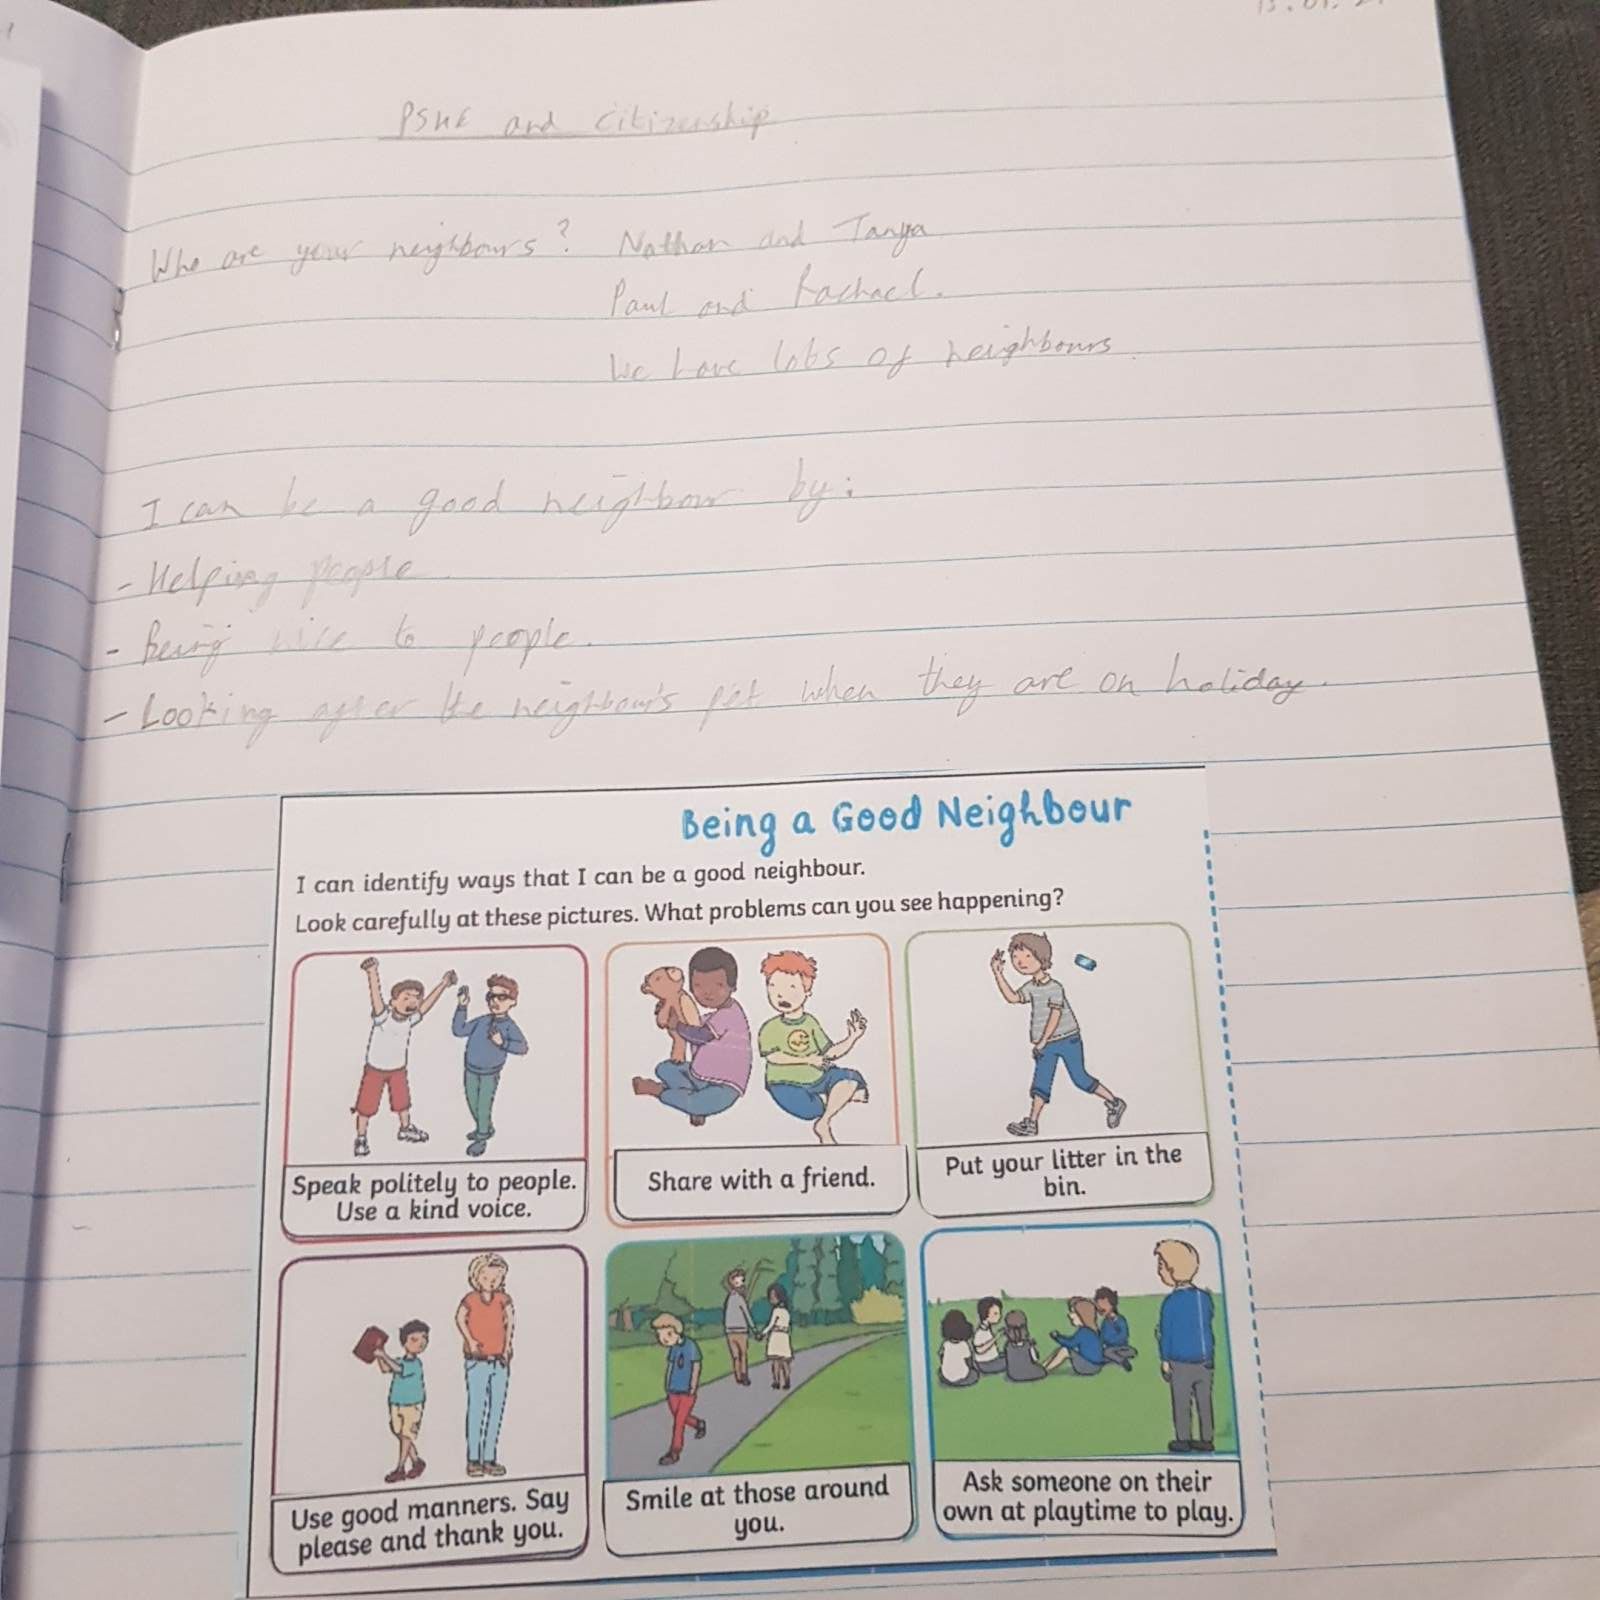 PSHE and citizenship
Who are your neighbours? Nathan and Tanya
Paul and Rachael.
We have lots of neighbours
I can be a good neighbour by:
- Helping people.
- Being nice to people.
- Looking after the neighbour's pet when they are on holiday.
Being a Good Neighbour
I can identify ways that I can be a good neighbour.
Look carefully at these pictures. What problems can you see happening?
Speak politely to people.
Use a kind voice.
Share with a friend.
Put your litter in the
bin.
Use good manners. Say
please and thank you.
Smile at those around
you.
Ask someone on their
own at playtime to play.